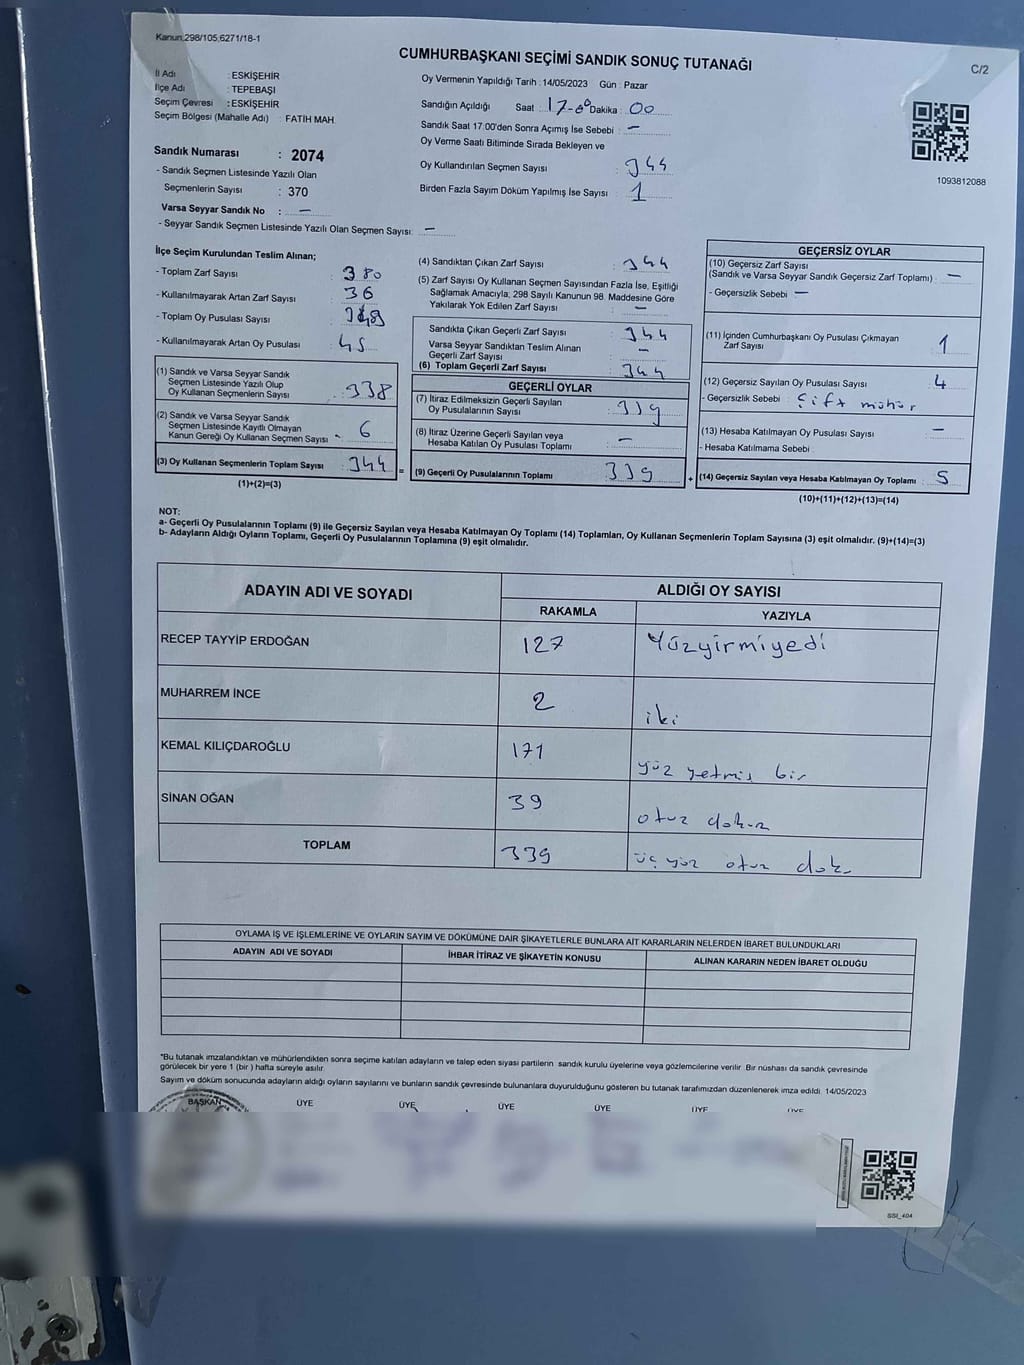 Kanun:298/105,6271/18-1
CUMHURBAŞKANI SEÇİMİ SANDIK SONUÇ TUTANAĞI
C/2
İl Adı : ESKİŞEHİR
İlçe Adı : TEPEBAŞI
Seçim Çevresi : ESKİŞEHİR
Seçim Bölgesi (Mahalle Adı) : FATİH MAH.
Sandık Numarası : 2074
- Sandık Seçmen Listesinde Yazılı Olan
Seçmenlerin Sayısı : 370
Varsa Seyyar Sandık No : –
- Seyyar Sandık Seçmen Listesinde Yazılı Olan Seçmen Sayısı: –
Oy Vermenin Yapıldığı Tarih : 14/05/2023 Gün : Pazar
Sandığın Açıldığı Saat : 17-00 Dakika : 00
Sandık Saat 17:00'den Sonra Açımış İse Sebebi : –
Oy Verme Saati Bitiminde Sırada Bekleyen ve
Oy Kullandırılan Seçmen Sayısı : 344
Birden Fazla Sayım Döküm Yapılmış İse Sayısı : 1
1093812088
İlçe Seçim Kurulundan Teslim Alınan;
- Toplam Zarf Sayısı : 380
- Kullanılmayarak Artan Zarf Sayısı : 36
- Toplam Oy Pusulası Sayısı :
- Kullanılmayarak Artan Oy Pusulası : 45
(1) Sandık ve Varsa Seyyar Sandık
Seçmen Listesinde Yazılı Olup
Oy Kullanan Seçmenlerin Sayısı : 338
(2) Sandık ve Varsa Seyyar Sandık
Seçmen Listesinde Kayıtlı Olmayan
Kanun Gereği Oy Kullanan Seçmen Sayısı : 6
(3) Oy Kullanan Seçmenlerin Toplam Sayısı : 344
(1)+(2)=(3)
(4) Sandıktan Çıkan Zarf Sayısı : 344
(5) Zarf Sayısı Oy Kullanan Seçmen Sayısından Fazla İse, Eşitliği
Sağlamak Amacıyla, 298 Sayılı Kanunun 98. Maddesine Göre
Yakılarak Yok Edilen Zarf Sayısı : –
Sandıkta Çıkan Geçerli Zarf Sayısı : 344
Varsa Seyyar Sandıktan Teslim Alınan
Geçerli Zarf Sayısı : –
(6) Toplam Geçerli Zarf Sayısı : 344
GEÇERLİ OYLAR
(7) İtiraz Edilmeksizin Geçerli Sayılan
Oy Pusulalarının Sayısı : 339
(8) İtiraz Üzerine Geçerli Sayılan veya
Hesaba Katılan Oy Pusulası Toplamı : –
= (9) Geçerli Oy Pusulalarının Toplamı : 339
GEÇERSİZ OYLAR
(10) Geçersiz Zarf Sayısı
(Sandık ve Varsa Seyyar Sandık Geçersiz Zarf Toplamı) : –
- Geçersizlik Sebebi : –
(11) İçinden Cumhurbaşkanı Oy Pusulası Çıkmayan
Zarf Sayısı : 1
(12) Geçersiz Sayılan Oy Pusulası Sayısı : 4
- Geçersizlik Sebebi : Çift mühür
(13) Hesaba Katılmayan Oy Pusulası Sayısı : –
- Hesaba Katılmama Sebebi :
+ (14) Geçersiz Sayılan veya Hesaba Katılmayan Oy Toplamı : 5
(10)+(11)+(12)+(13)=(14)
NOT:
a- Geçerli Oy Pusulalarının Toplamı (9) ile Geçersiz Sayılan veya Hesaba Katılmayan Oy Toplamı (14) Toplamları, Oy Kullanan Seçmenlerin Toplam Sayısına (3) eşit olmalıdır. (9)+(14)=(3)
b- Adayların Aldığı Oyların Toplamı, Geçerli Oy Pusulalarının Toplamına (9) eşit olmalıdır.
ADAYIN ADI VE SOYADI ALDIĞI OY SAYISI
RAKAMLA YAZIYLA
RECEP TAYYİP ERDOĞAN 127 Yüzyirmiyedi
MUHARREM İNCE 2 iki
KEMAL KILIÇDAROĞLU 171 yüz yetmiş bir
SİNAN OĞAN 39 otuz dokuz
TOPLAM 339 üç yüz otuz dok
OYLAMA İŞ VE İŞLEMLERİNE VE OYLARIN SAYIM VE DÖKÜMÜNE DAİR ŞİKAYETLERLE BUNLARA AİT KARARLARIN NELERDEN İBARET BULUNDUKLARI
ADAYIN ADI VE SOYADI İHBAR İTİRAZ VE ŞİKAYETİN KONUSU ALINAN KARARIN NEDEN İBARET OLDUĞU
*Bu tutanak imzalandıktan ve mühürlendikten sonra seçime katılan adayların ve talep eden siyasi partilerin sandık kurulu üyelerine veya gözlemcilerine verilir. Bir nüshası da sandık çevresinde
görülecek bir yere 1 (bir ) hafta süreyle asılır.
Sayım ve döküm sonucunda adayların aldığı oyların sayılarını ve bunların sandık çevresinde bulunanlara duyurulduğunu gösteren bu tutanak tarafımızdan düzenlenerek imza edildi. 14/05/2023
BAŞKAN ÜYE ÜYE ÜYE ÜYE ÜYE ÜYE
SSI_404